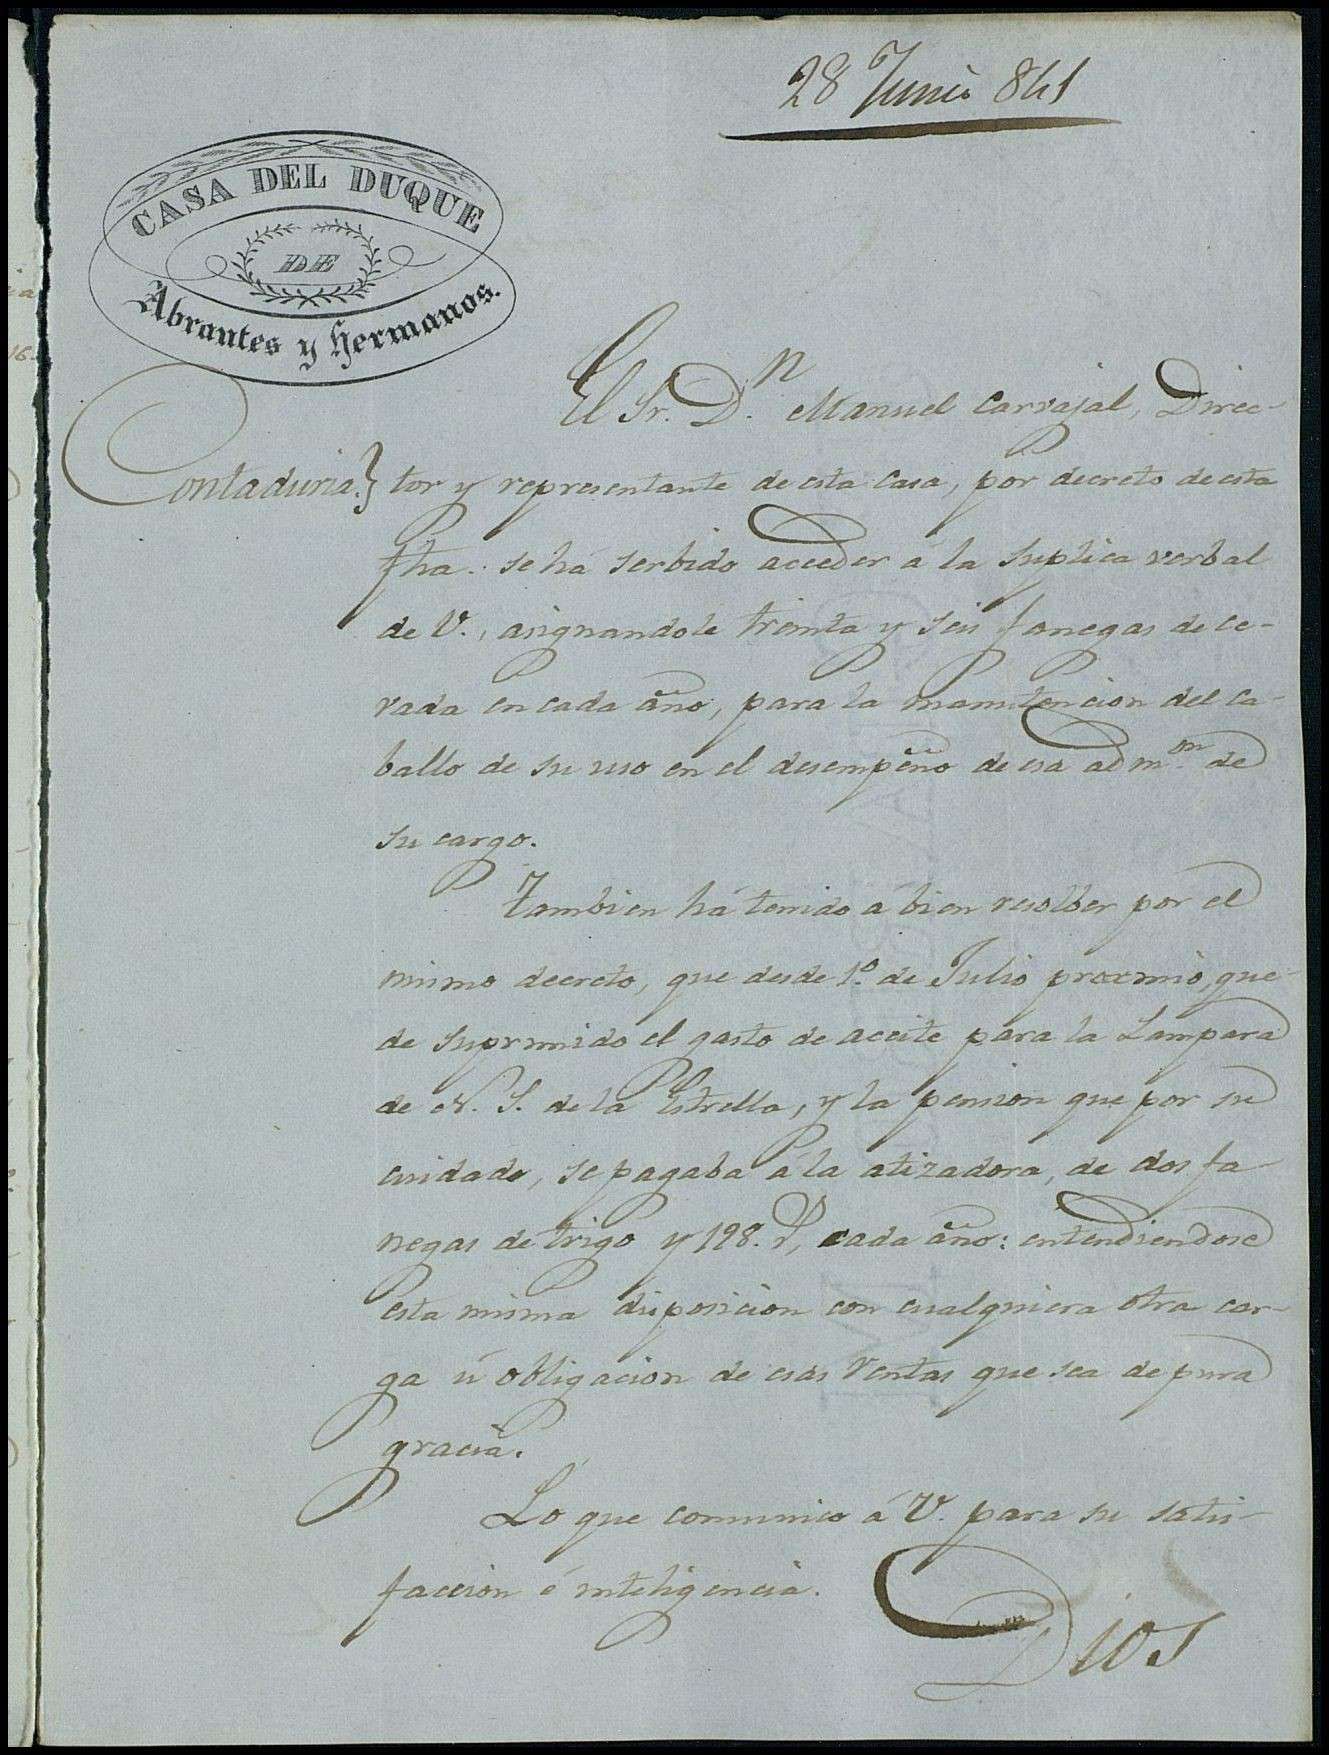 28 Junio 841
CASA DEL DUQUE
DE
Abrantes y Hermanos.
El Sr. D.n Manuel Carvajal, Direc-
Contaduria.} tor y representante de esta Casa, por decreto de esta
fha. se há serbido acceder á la Suplica verbal
de V., asignandole treinta y seis fanegas de ce-
vada en cada año, para la manutencion del ca-
ballo de su uso en el desempeño de esa adm.on de
su cargo.
Tambien há tenido á bien resolber por el
mismo decreto, que desde 1.º de Julio proxmio, que-
de suprimido el gasto de aceite para la Lampara
de N. S. de la Estrella, y la pension que por su
cuidado, se pagaba á la atizadora, de dos fa
negas de trigo y 198. cada año: entendiendose
esta misma disposicion con cualquiera otra car-
ga ú obligacion de esas Rentas que sea de pura
gracia.
Lo que comunico á V. para su satis-
faccion é inteligencia.
Dios